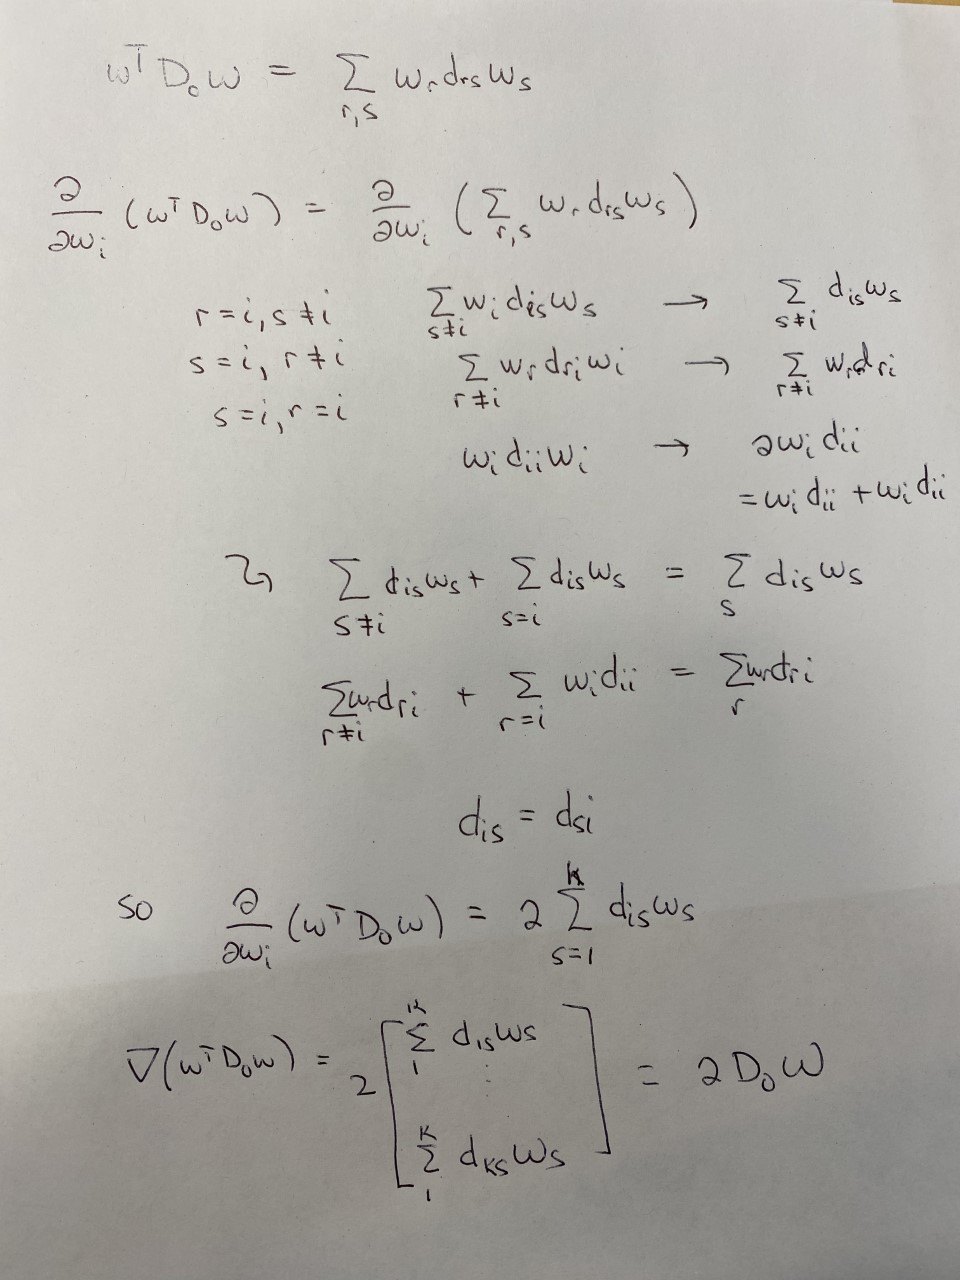 wᵀD₀w = Σ_{r,s} w_r d_rs w_s
∂/∂w_i (wᵀD₀w) = ∂/∂w_i (Σ_{r,s} w_r d_rs w_s)
r=i, s≠i Σ_{s≠i} w_i d_is w_s → Σ_{s≠i} d_is w_s
s=i, r≠i Σ_{r≠i} w_r d_ri w_i → Σ_{r≠i} w_r d_ri
s=i, r=i w_i d_ii w_i → 2w_i d_ii
= w_i d_ii + w_i d_ii
↪ Σ_{s≠i} d_is w_s + Σ_{s=i} d_is w_s = Σ_s d_is w_s
Σ_{r≠i} w_r d_ri + Σ_{r=i} w_i d_ii = Σ_r w_r d_ri
d_is = d_si
so ∂/∂w_i (wᵀD₀w) = 2 Σ_{s=1}^{K} d_is w_s
∇(wᵀD₀w) = 2 [ Σ_1^K d_1s w_s ⋮ Σ_1^K d_Ks w_s ] = 2D₀w